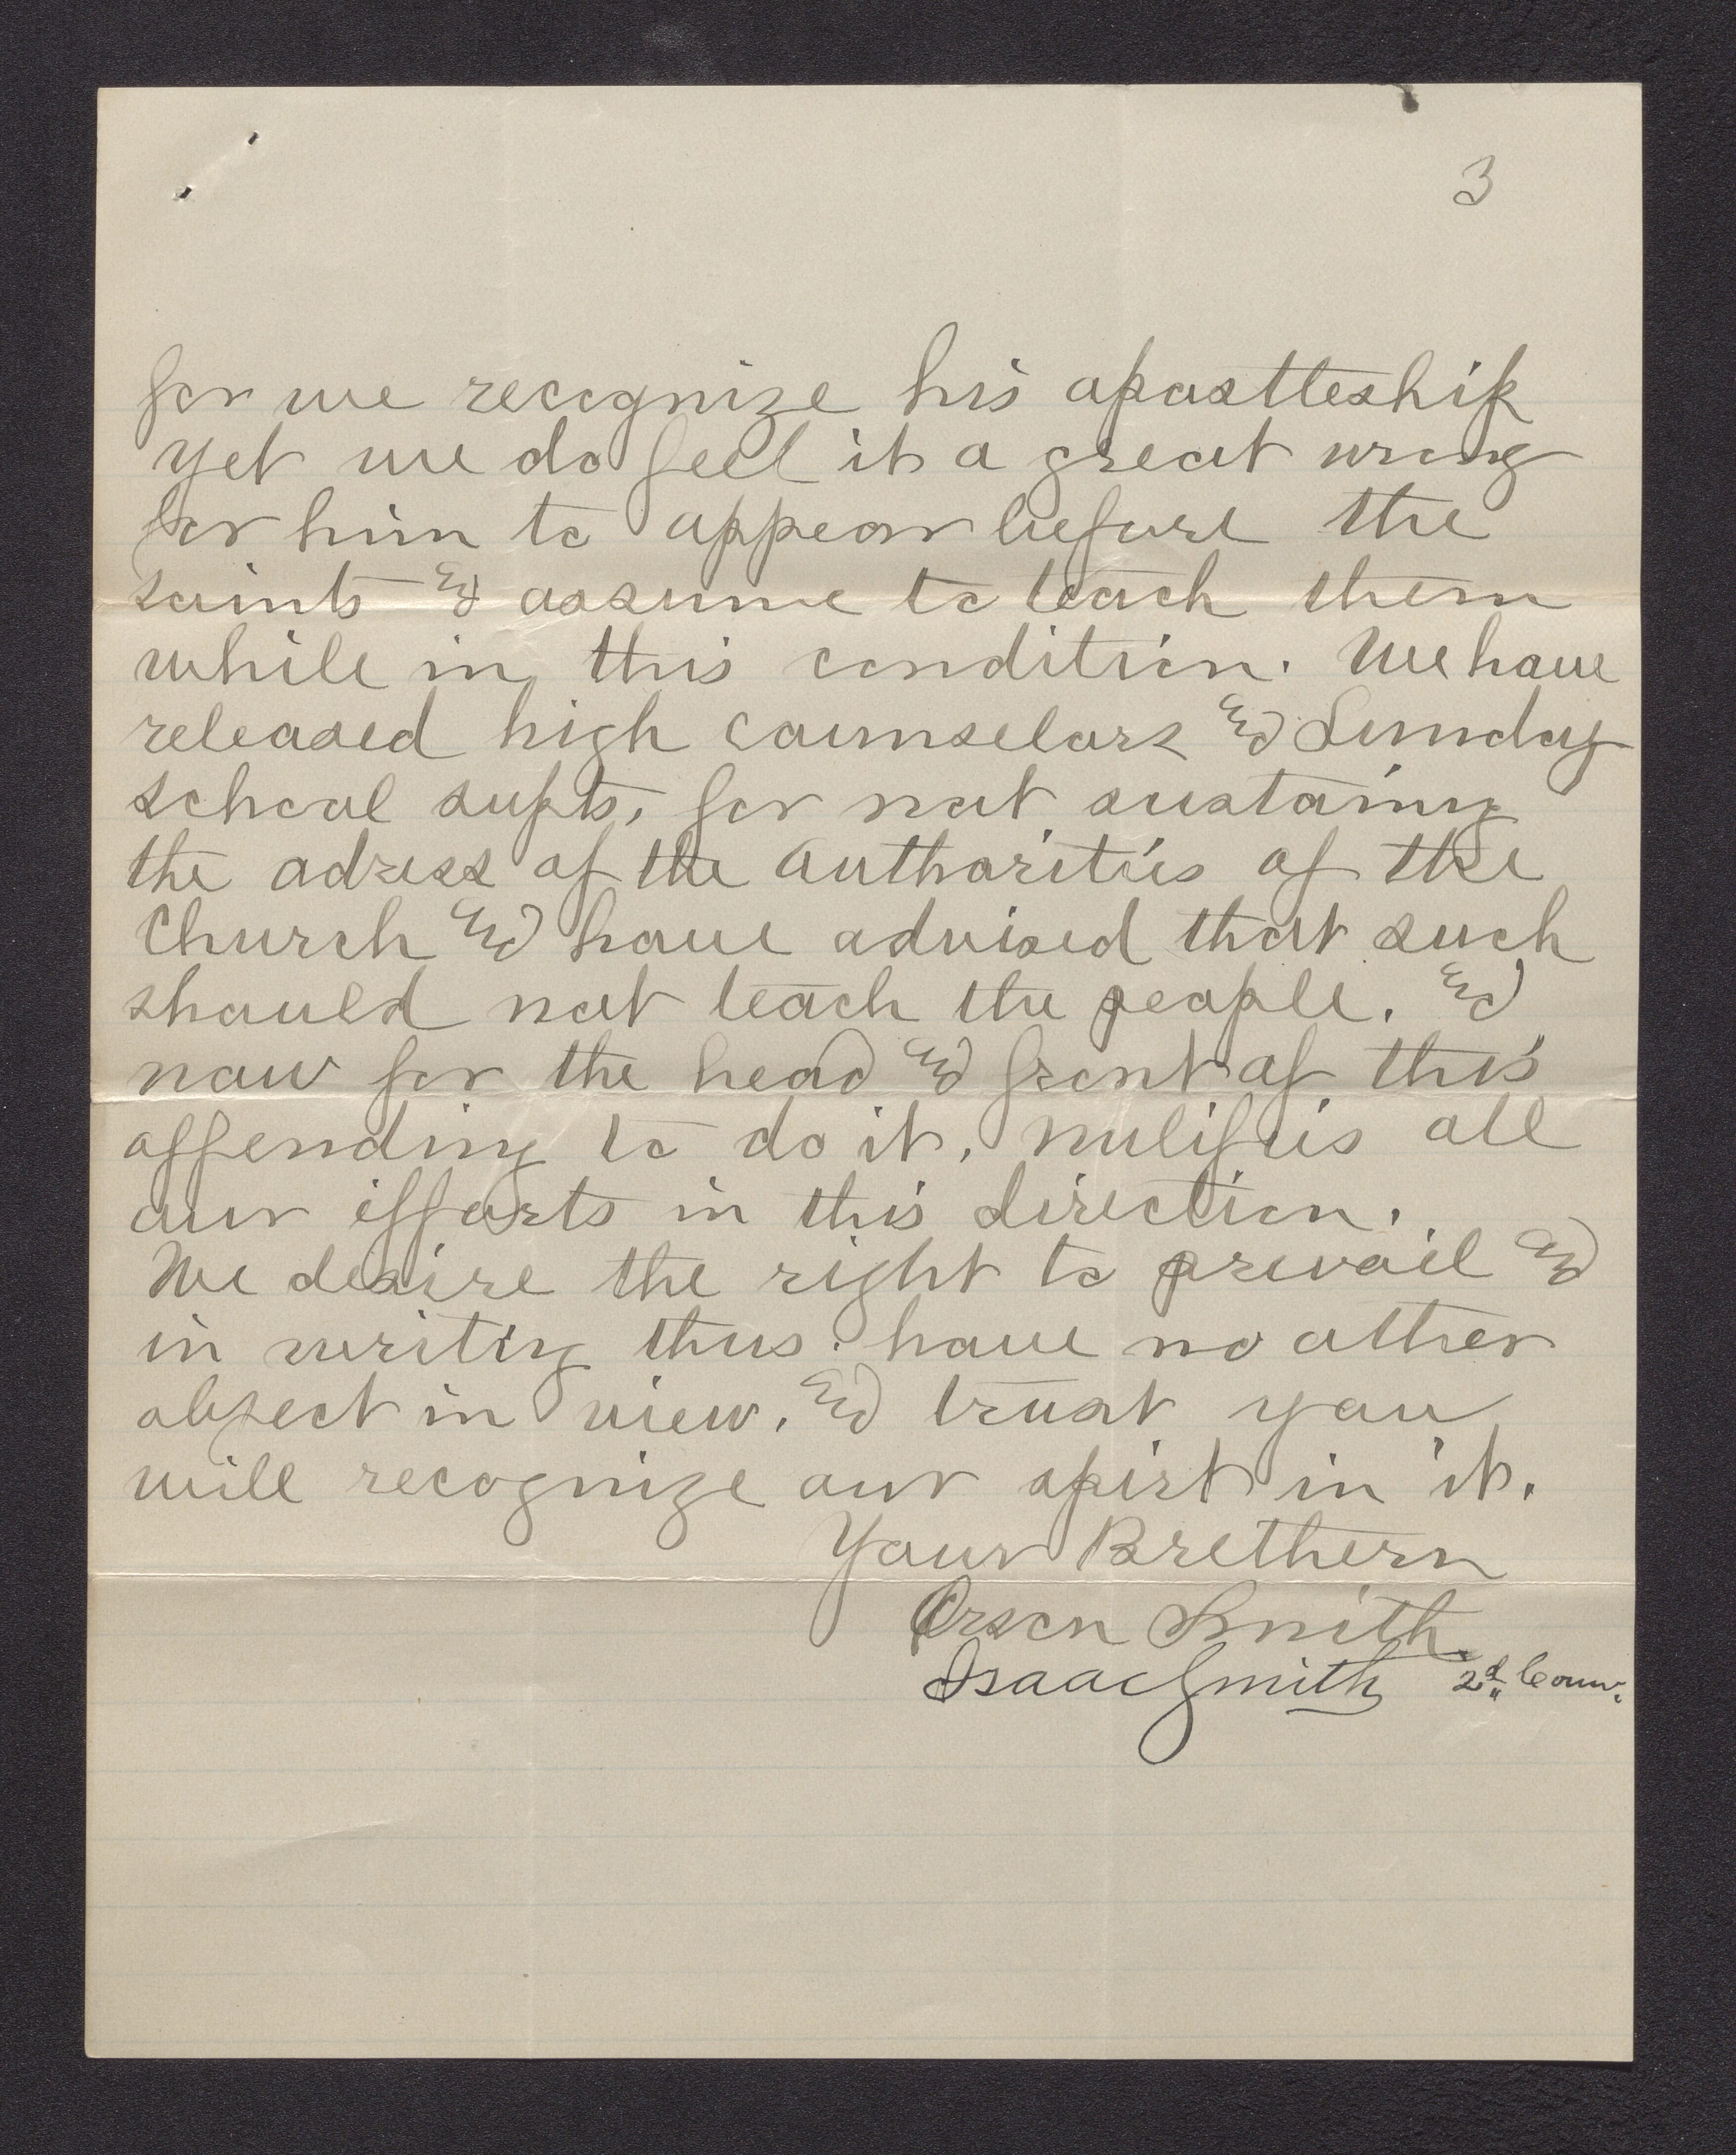 3
for we recognize his apostleship
yet we do feel it a great wrong
for him to appear before the
saints & assume to teach them
while in this condition. We have
released high counselors & Sunday
school supts, for not sustaining
the adress of the authorities of the
Church & have advised that such
should not teach the people. &
now for the head & front of this
offending to do it, nulifies all
our efforts in this direction.
We desire the right to prevail &
in writing thus have no other
object in view, & trust you
will recognize our spirt in it.
Your Brethern
Orson Smith
Isaac Smith 2d Coun.